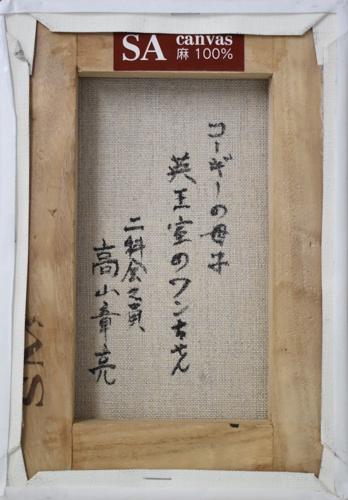 SA canvas
麻 100%
コーギーの母子
英王室のワンちゃん
二科会会員
高山章亮
SA